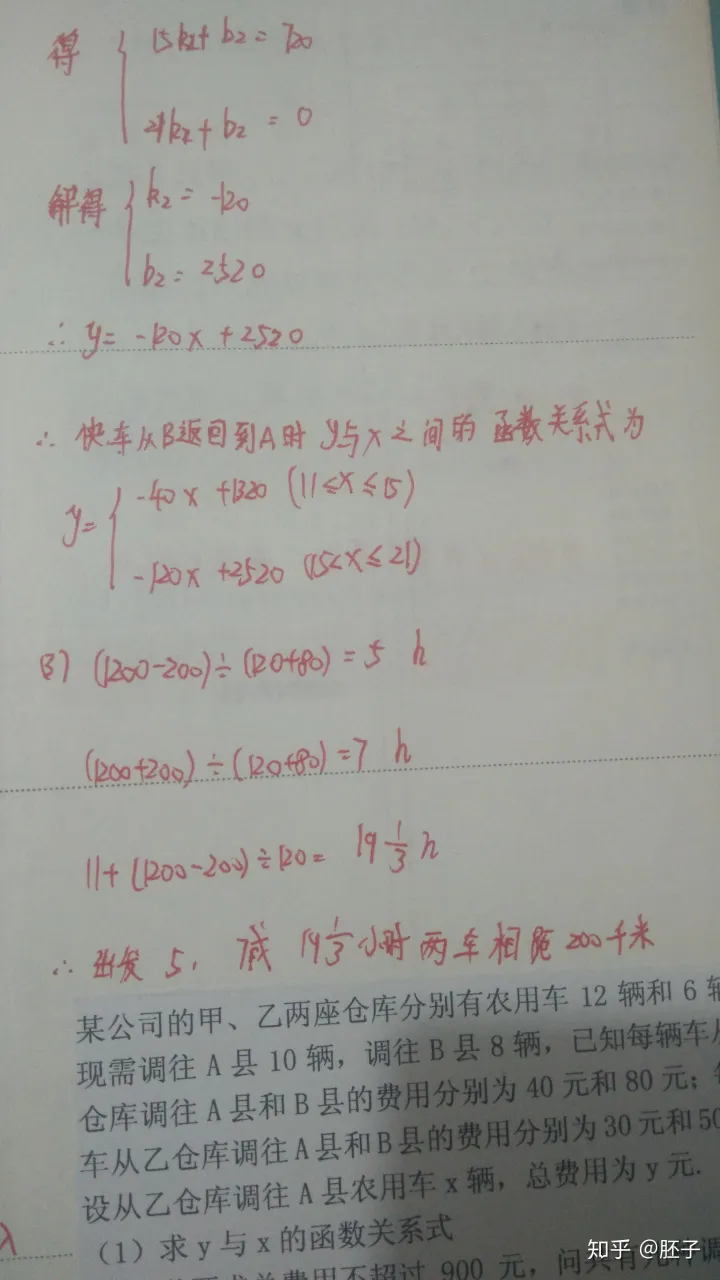 得 { 15k₂+b₂=720
21k₂+b₂=0
解得 { k₂=-120
b₂=2520
∴ y=-120x+2520
∴ 快车从B返回到A时 y与x之间的函数关系式为
y= { -40x+1320 (11≤x≤15)
-120x+2520 (15<x≤21)
(3) (1200-200)÷(120+80)=5 h
(1200+200)÷(120+80)=7 h
11+(1200-200)÷120= 19⅓ h
∴ 出发 5, 7或 19⅓小时两车相距200千米
某公司的甲、乙两座仓库分别有农用车 12 辆和 6 辆
现需调往 A 县 10 辆，调往 B 县 8 辆，已知每辆车从
仓库调往 A 县和 B 县的费用分别为 40 元和 80 元；每
车从乙仓库调往 A 县和 B 县的费用分别为 30 元和 50
设从乙仓库调往 A 县农用车 x 辆，总费用为 y 元．
（1）求 y 与 x 的函数关系式
求总费用不超过 900 元，问共有几种调
知乎 @胚子